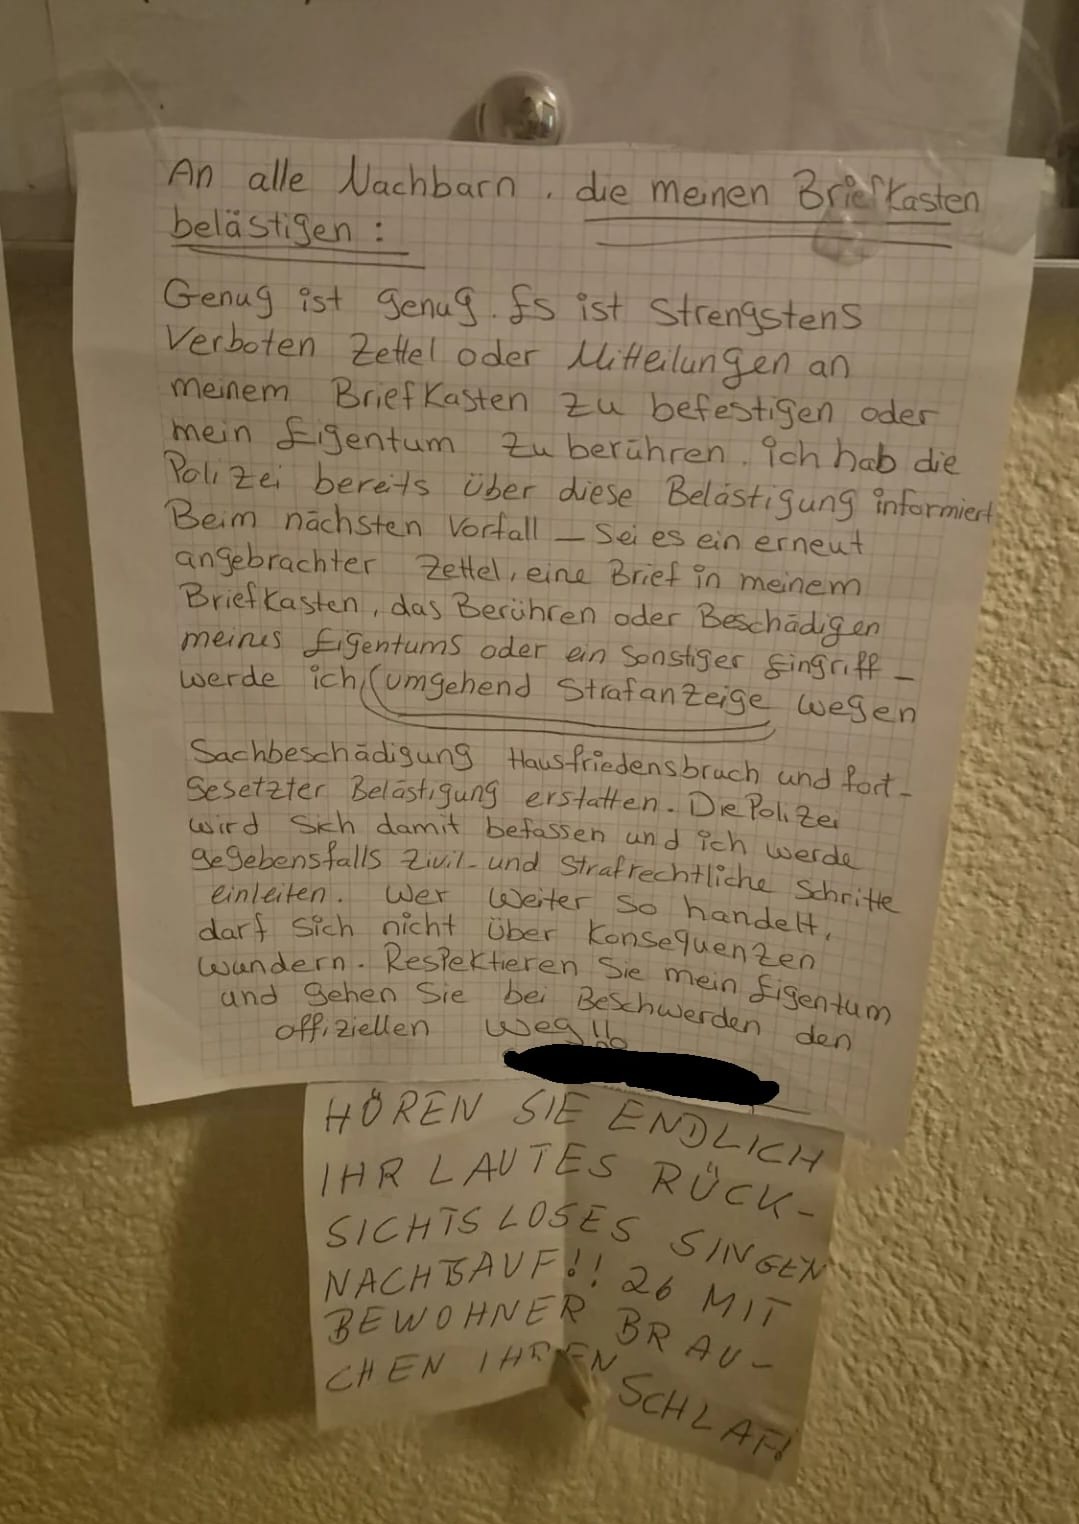 An alle Nachbarn, die meinen Briefkasten
belästigen:
Genug ist genug. Es ist Strengstens
Verboten Zettel oder Mitteilungen an
meinem Briefkasten zu befestigen oder
mein Eigentum zu berühren. ich hab die
Polizei bereits über diese Belästigung informiert
Beim nächsten Vorfall – Sei es ein erneut
angebrachter Zettel, eine Brief in meinem
Briefkasten, das Berühren oder Beschädigen
meines Eigentums oder ein Sonstiger Eingriff –
werde ich (umgehend Strafanzeige wegen
Sachbeschädigung Hausfriedensbruch und fort-
gesetzter Belästigung erstatten. Die Polizei
wird sich damit befassen und ich werde
gegebensfalls Zivil- und Strafrechtliche Schritte
einleiten. Wer weiter so handelt,
darf sich nicht über Konsequenzen
wundern. Respektieren Sie mein Eigentum
und gehen Sie bei Beschwerden den
offiziellen Weg!!
HÖREN SIE ENDLICH
IHR LAUTES RÜCK-
SICHTSLOSES SINGEN
NACHTSAUF!! 26 MIT
BEWOHNER BRAU-
CHEN IHREN SCHLAF!